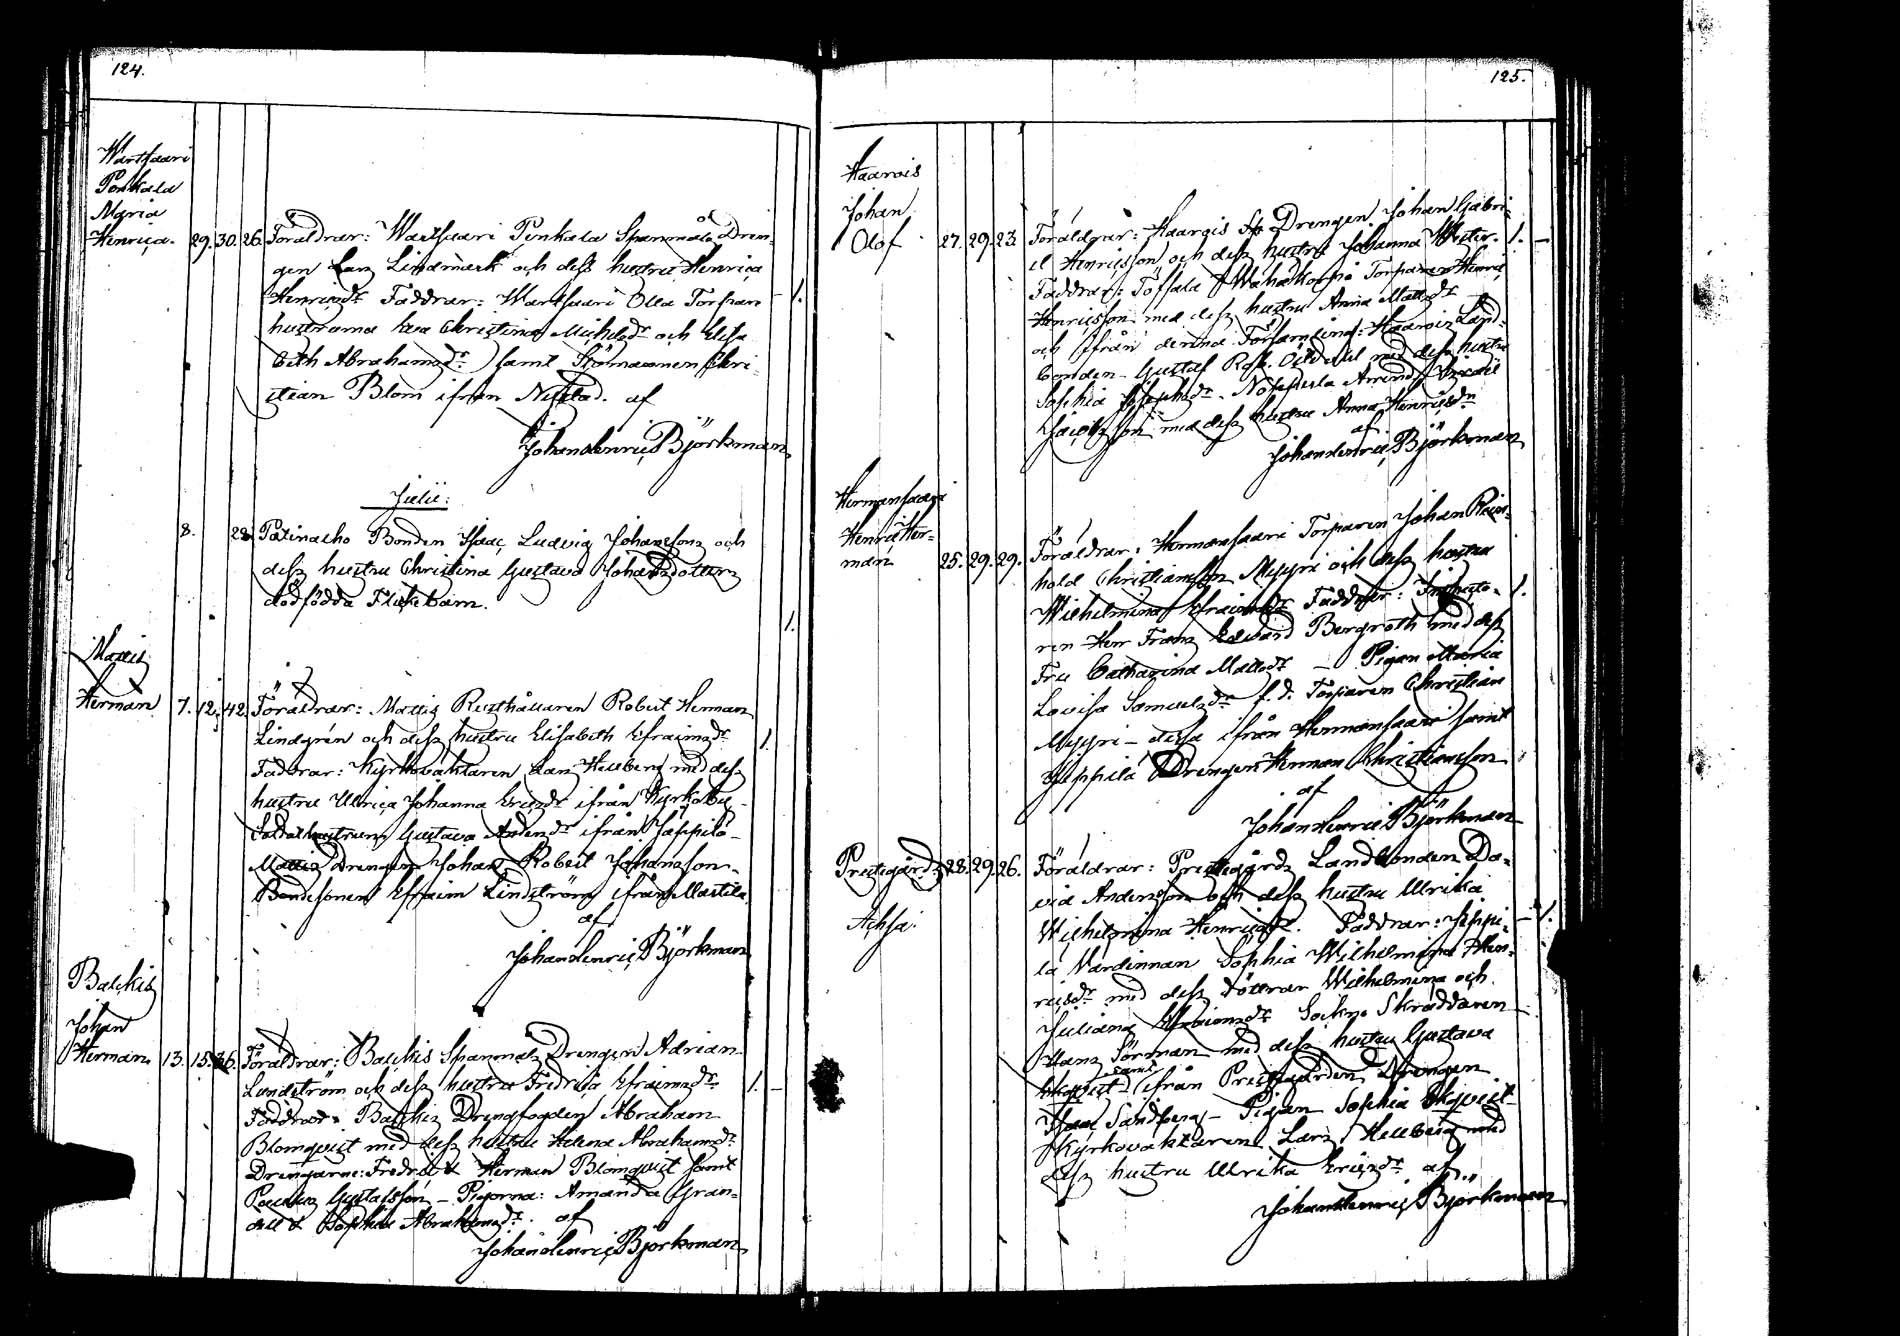 124.
Wartsaari
Penkala
Maria
Henrica. 29. 30. 26. Föräldrar: Wartsaari Penkala Spanmåls Dren-
gen Lars Lindmark och dess hustru Henrica
Henricsdr Faddrar: Wartsaari Olla Torpare
hustrurna Eva Christina Michelsdr och Elisa
beth Abrahamsdr samt Sjömannen Chri-
stian Blom ifrån Nystad. af
Johan Henric Björkman
Julii:
8. 28. Patinalho Bonden Isaac Ludvig Johansson och
dess hustru Christina Gustava Johansdotters
dödfödda Flickebarn.
1.
Mattis
Herman 7. 12. 42. Föräldrar: Mattis Rusthållaren Robert Herman
Lindgrén och dess hustru Elisabeth Efraimsdr
Faddrar: Kyrkovaktaren Lars Hellberg med dess
hustru Ulrica Johanna Ericsdr ifrån Kyrkoby
Soldathustrun Gustava Andersdr ifrån Jäppilä
Mattis Drengen Johan Robert Johansson
Bondesonen Efraim Lindström ifrån Mastila
af
Johan Henric Björkman
Balckis
Johan
Herman. 13. 15. 36. Föräldrar: Balckis Spanmåls Drengen Adrian
Lundström och dess hustru Fredrica Efraimsdr 1.
Faddrar: Balckis Drengfogden Abraham
Blomqvist med dess hustru Helena Abrahamsdr
Drengarne: Fredric & Herman Blomqvist samt
Gustafsson – Pigorna: Amanda Gran-
dell & Sophia Abrahamsdr. af
Johan Henric Björkman
125.
Haarois
Johan
Olof 27. 29. 23. Föräldrar: Haarois Drengen Johan Gabri-
el Henricsson och dess hustru Johanna Wester- 1.
Faddrar: Töfsala Torparen Henric
Henricsson med dess hustru Anna Mattsdr
och ifrån denna Församling: Haarois Land-
bonden Gustaf med dess hustru
Sophia Josephsdr – Israel
Jacobsson med dess hustru Anna Henricsdr
af
Johan Henric Björkman
Hermansaari
Henric Her-
man 25. 29. 29. Föräldrar: Hermansaari Torparen Johan Rein-
hold Christiansson Myyri och dess hustru
Wilhelmina Efraimsdr Faddrar: Inspecto- 1.
ren Herr Frans Edvard Bergroth med dess
Fru Catharina Mattsdr – Pigan Maria
Lovisa Samuelsdr f.d. Torparen Christian
Myyri – dessa ifrån Hermansaari samt
Jäppilä Drengen Herman Christiansson
af
Johan Henric Björkman
Prestegårds 28. 29. 26. Föräldrar: Prestegårds Landbonden Da-
vid Andersson och dess hustru Ulrika
Achsa. Wilhelmina Henricsdr. Faddrar: Jäppi- 1.
lä Värdinnan Sophia Wilhelmina Hen-
ricsdr med dess döttrar Wilhelmina och
Juliana Efraimsdr Sockne Skräddaren
Hans Sörman med dess hustru Gustava
samt
Ekqvist ifrån Prestgården Drengen
Isac Sandberg – Pigan Sophia Ekqvist
Kyrkovaktaren Lars Hellberg med
dess hustru Ulrika Ericsdr af
Johan Henric Björkman